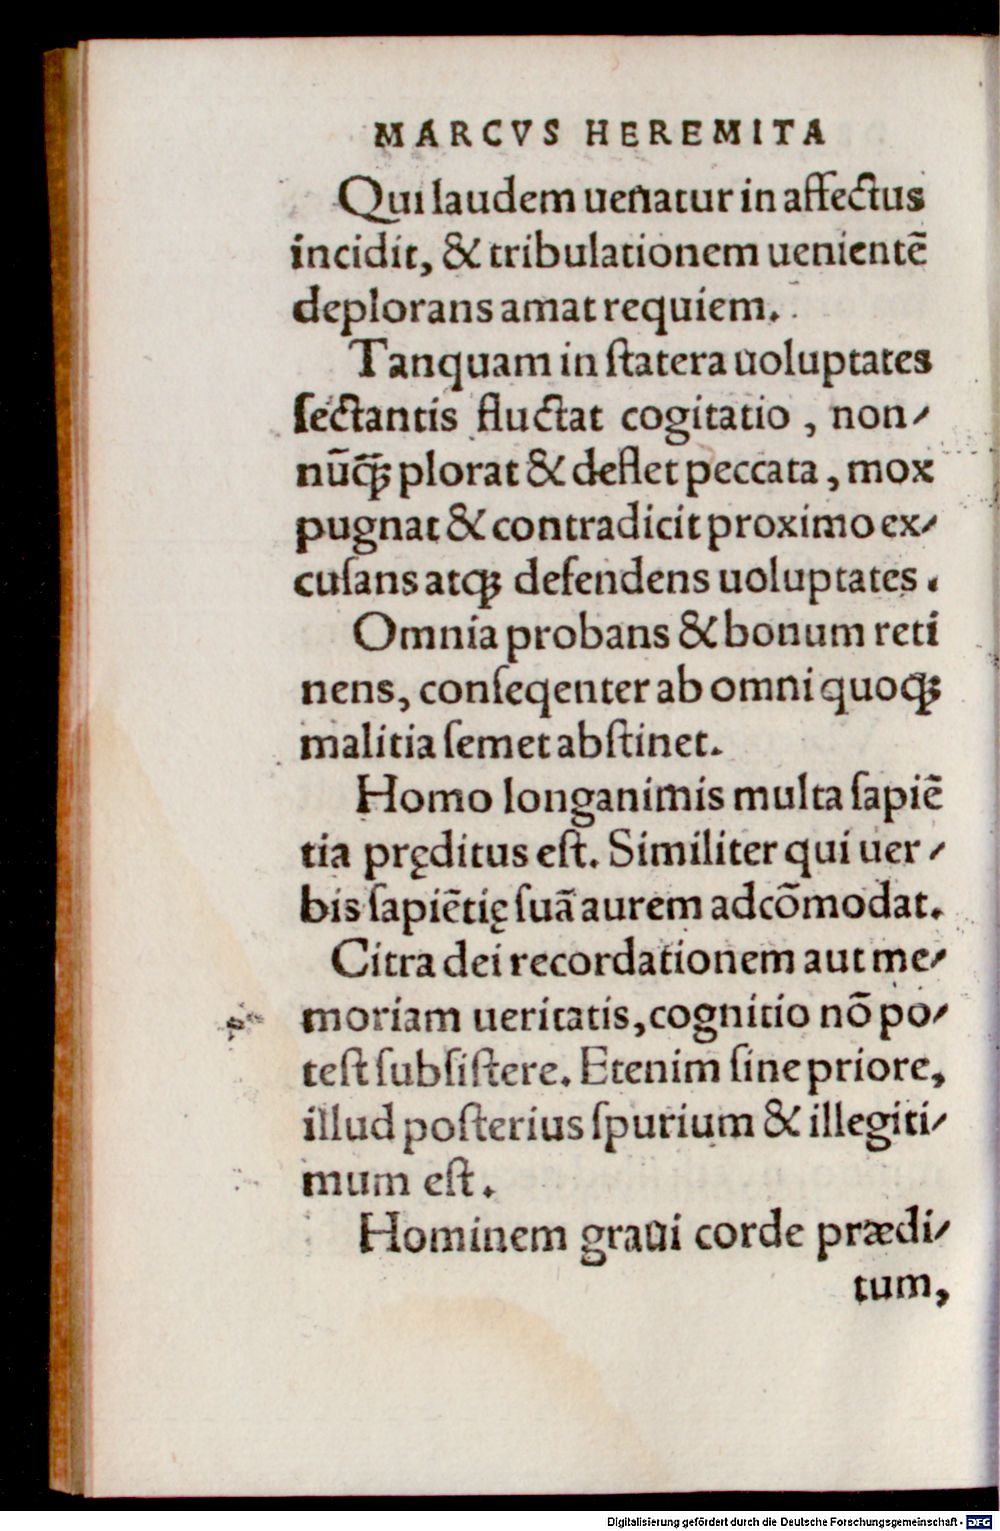 MARCVS HEREMITA
Qui laudem uenatur in affectus
incidit, & tribulationem uenientē
deplorans amat requiem.
Tanquam in ſtatera uoluptates
ſectantis fluctat cogitatio, non⸗
nūq̄ꝫ plorat & deflet peccata, mox
pugnat & contradicit proximo ex⸗
cuſans atqꝫ defendens uoluptates.
Omnia probans & bonum reti
nens, conſeqenter ab omni quoqꝫ
malitia ſemet abſtinet.
Homo longanimis multa ſapiē
tia pręditus eſt. Similiter qui uer⸗
bis ſapiētię ſuā aurem adcōmodat.
Citra dei recordationem aut me⸗
moriam ueritatis, cognitio nō po⸗
teſt ſubſiſtere. Etenim ſine priore,
illud poſterius ſpurium & illegiti⸗
mum eſt.
Hominem graui corde prædi⸗
tum,
Digitalisierung gefördert durch die Deutsche Forschungsgemeinschaft - DFG